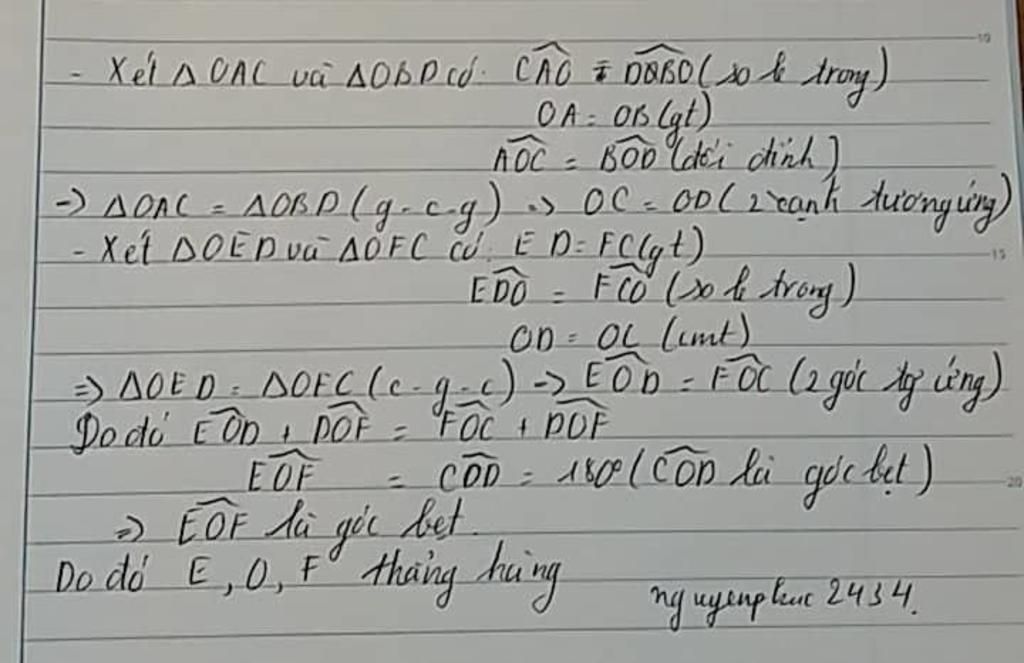 - Xét ΔOAC và ΔOBD có: CAO = DBO (so le trong)
OA = OB (gt)
AOC = BOD (đối đỉnh)
-> ΔOAC = ΔOBD (g-c-g) => OC = OD (2 cạnh tương ứng)
- Xét ΔOED và ΔOFC có: ED = FC (gt)
EDO = FCO (so le trong)
OD = OC (cmt)
=> ΔOED = ΔOFC (c-g-c) -> EOD = FOC (2 góc tg ứng)
Do đó EOD + DOF = FOC + DOF
EOF = COD = 180° (COD là góc bẹt)
=> EOF là góc bẹt.
Do đó E, O, F thẳng hàng
nguyenphuc 2434.
10
15
20